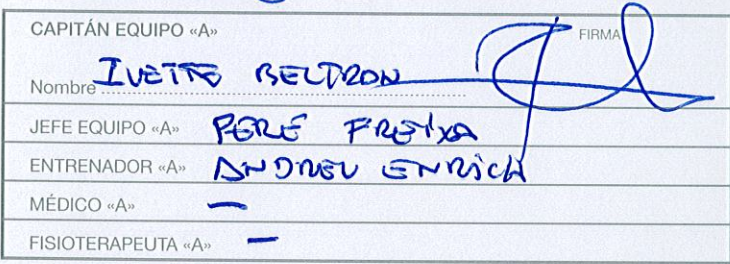 CAPITÁN EQUIPO «A» FIRMA
Nombre IVETTE BELTRON
JEFE EQUIPO «A» PERE FREIXA
ENTRENADOR «A» ANDREU ENRICH
MÉDICO «A» —
FISIOTERAPEUTA «A» —